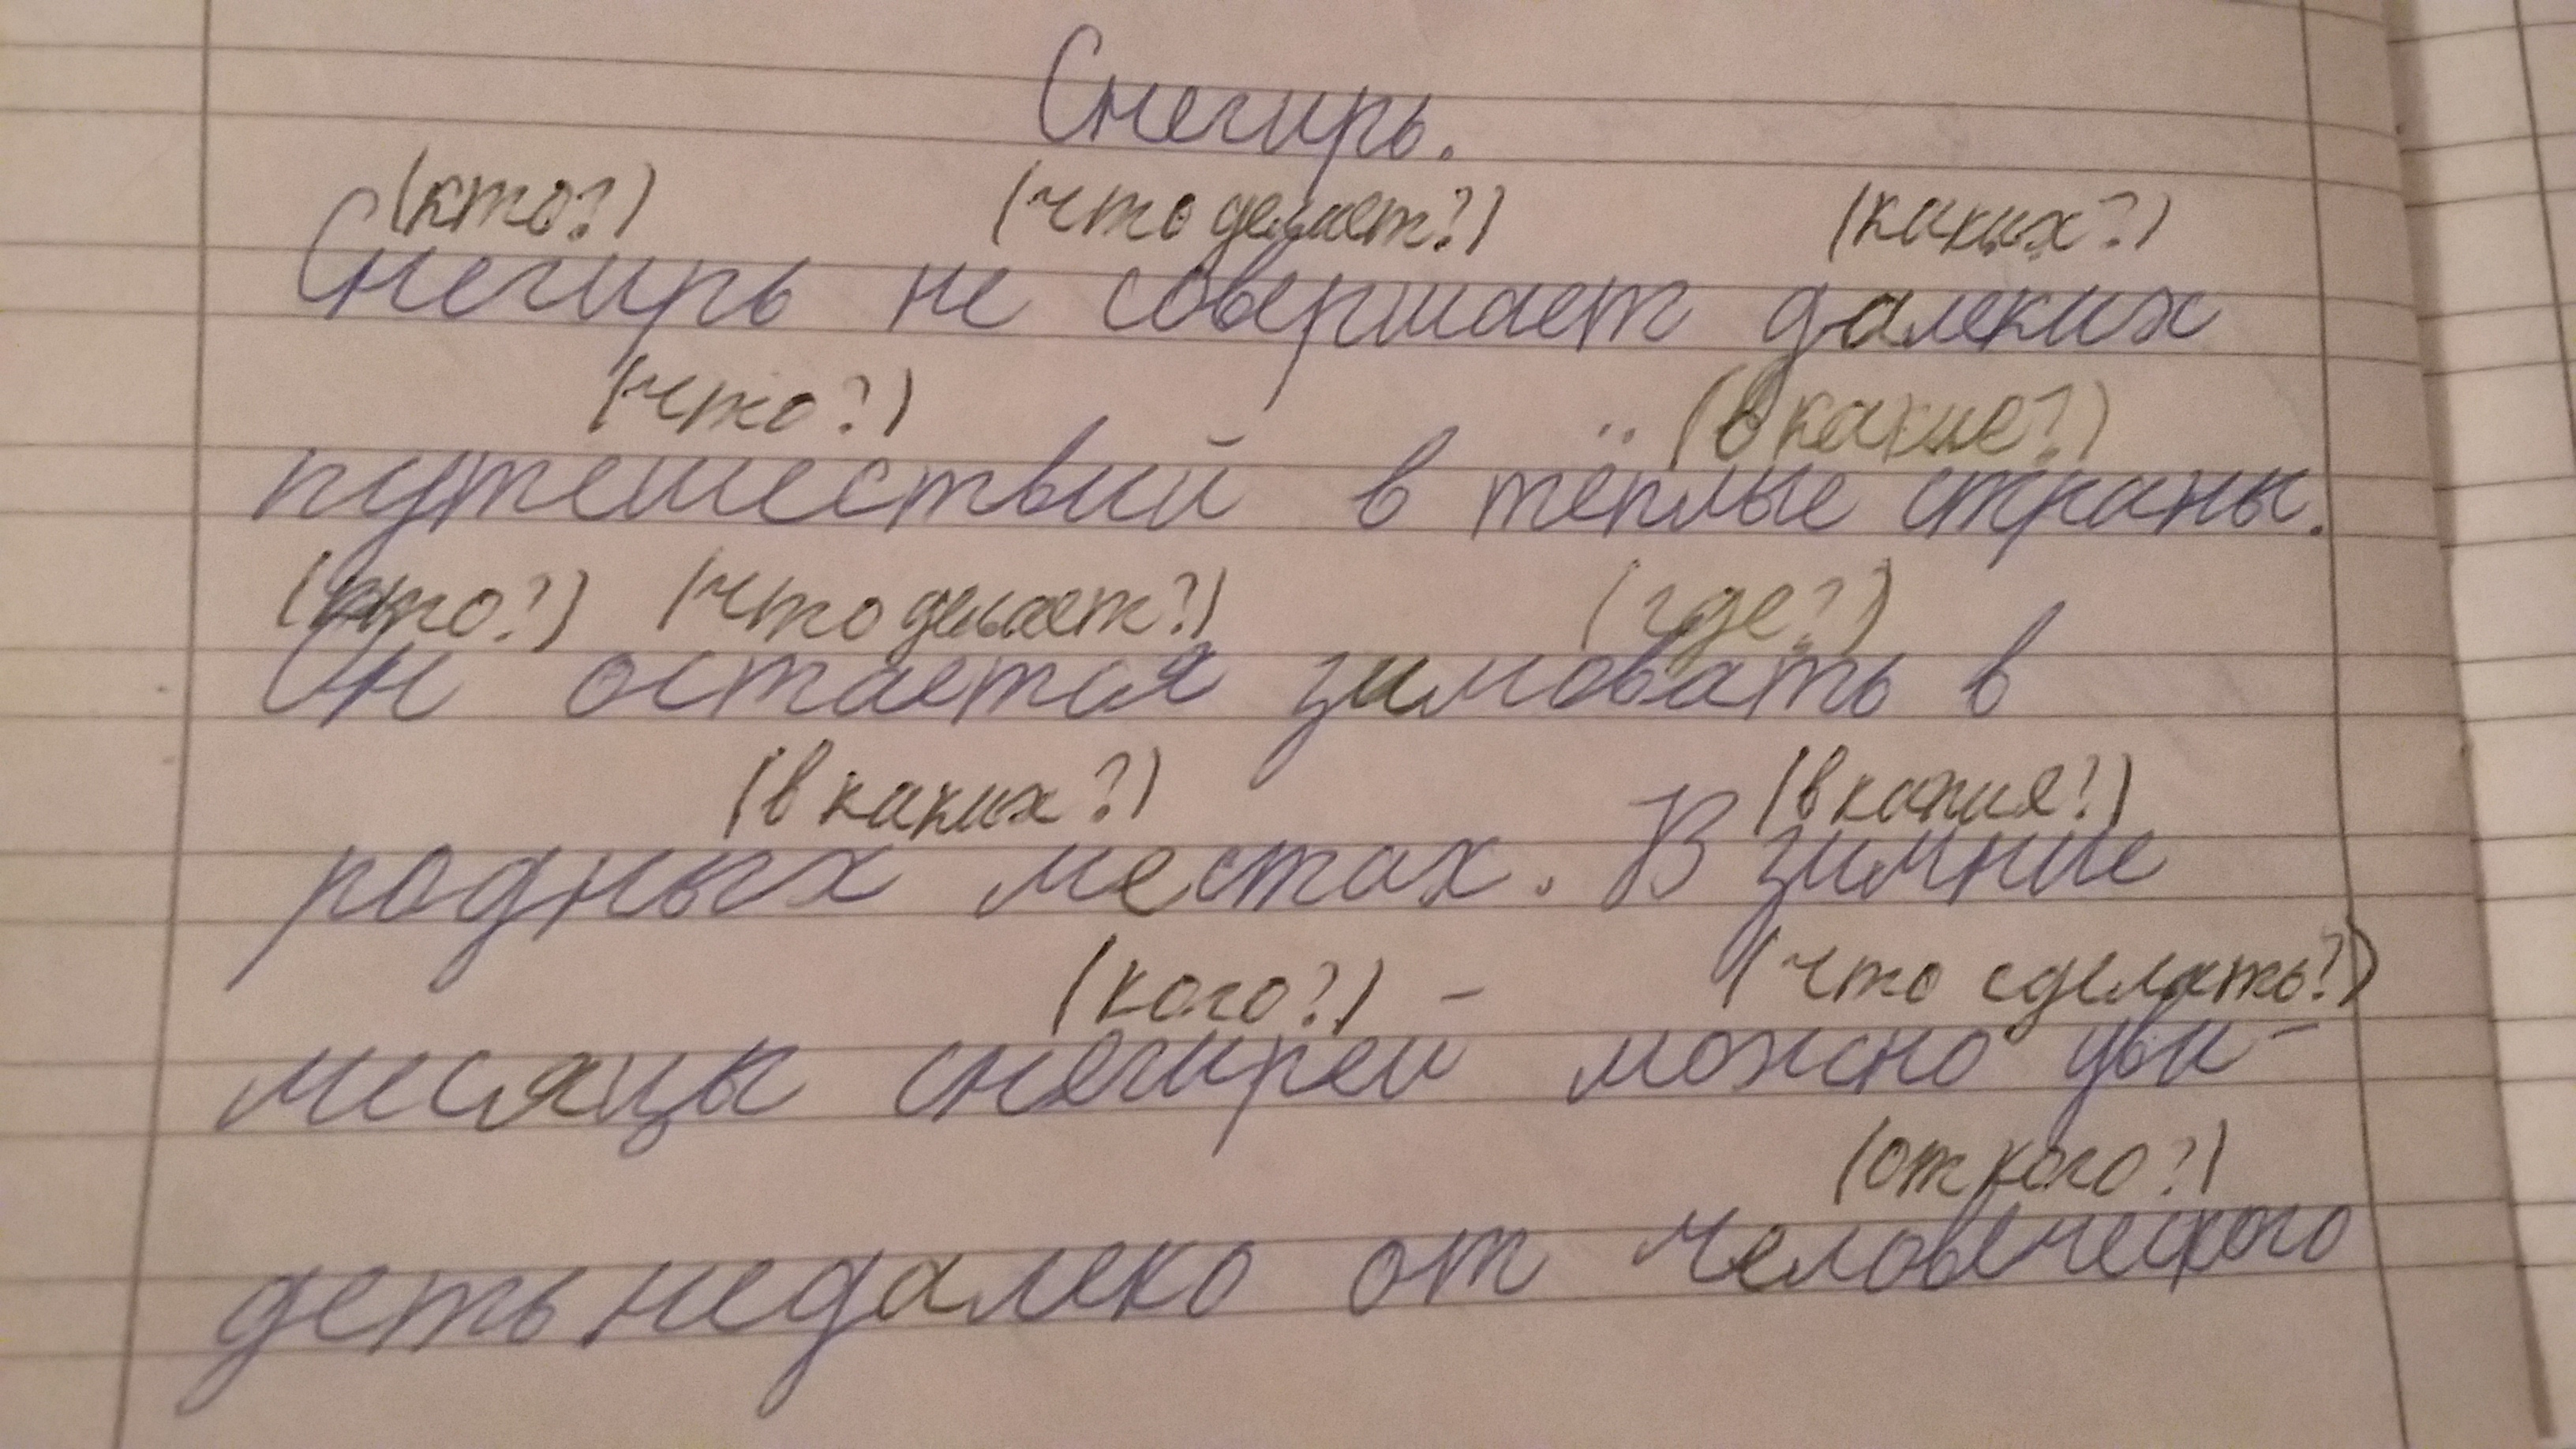 Снегирь.
(кто?) (что делает?) (каких?)
Снегирь не совершает далеких
(что?) (в какие?)
путешествий в тёплые страны.
(кто?) (что делает?) (где?)
Он остается зимовать в
(в каких?) (в какия?)
родных местах. В зимние
(кого?) (что сделать?)
месяцы снегирей можно уви-
(от кого?)
деть недалеко от человеческого